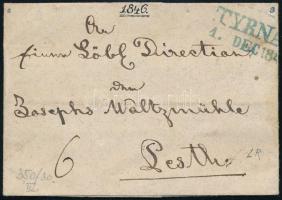 1846.
TYRNA
1. DEC:
An
Eine Löbl Direction
der
Josephs Waltzmühle
6
Pesth.
350/30